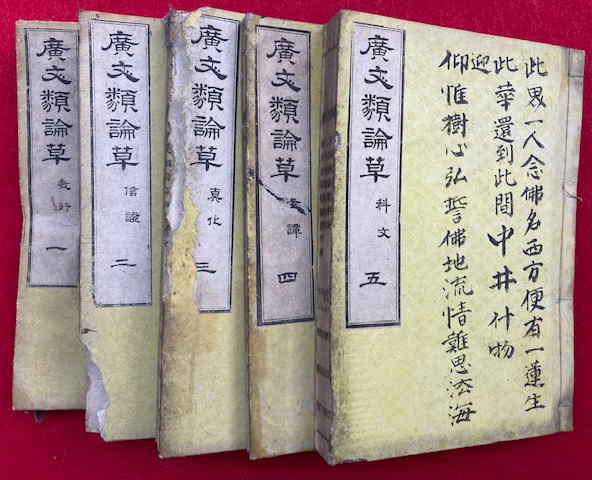 此界一人念佛名西方便有一蓮生
此華還到此間 中井什物
迎
仰惟樹心弘誓佛地流情難思法海
廣文類論草 科文 五
廣文類論草 譚 四
廣文類論草 真化 三
廣文類論草 信證 二
廣文類論草 教行 一